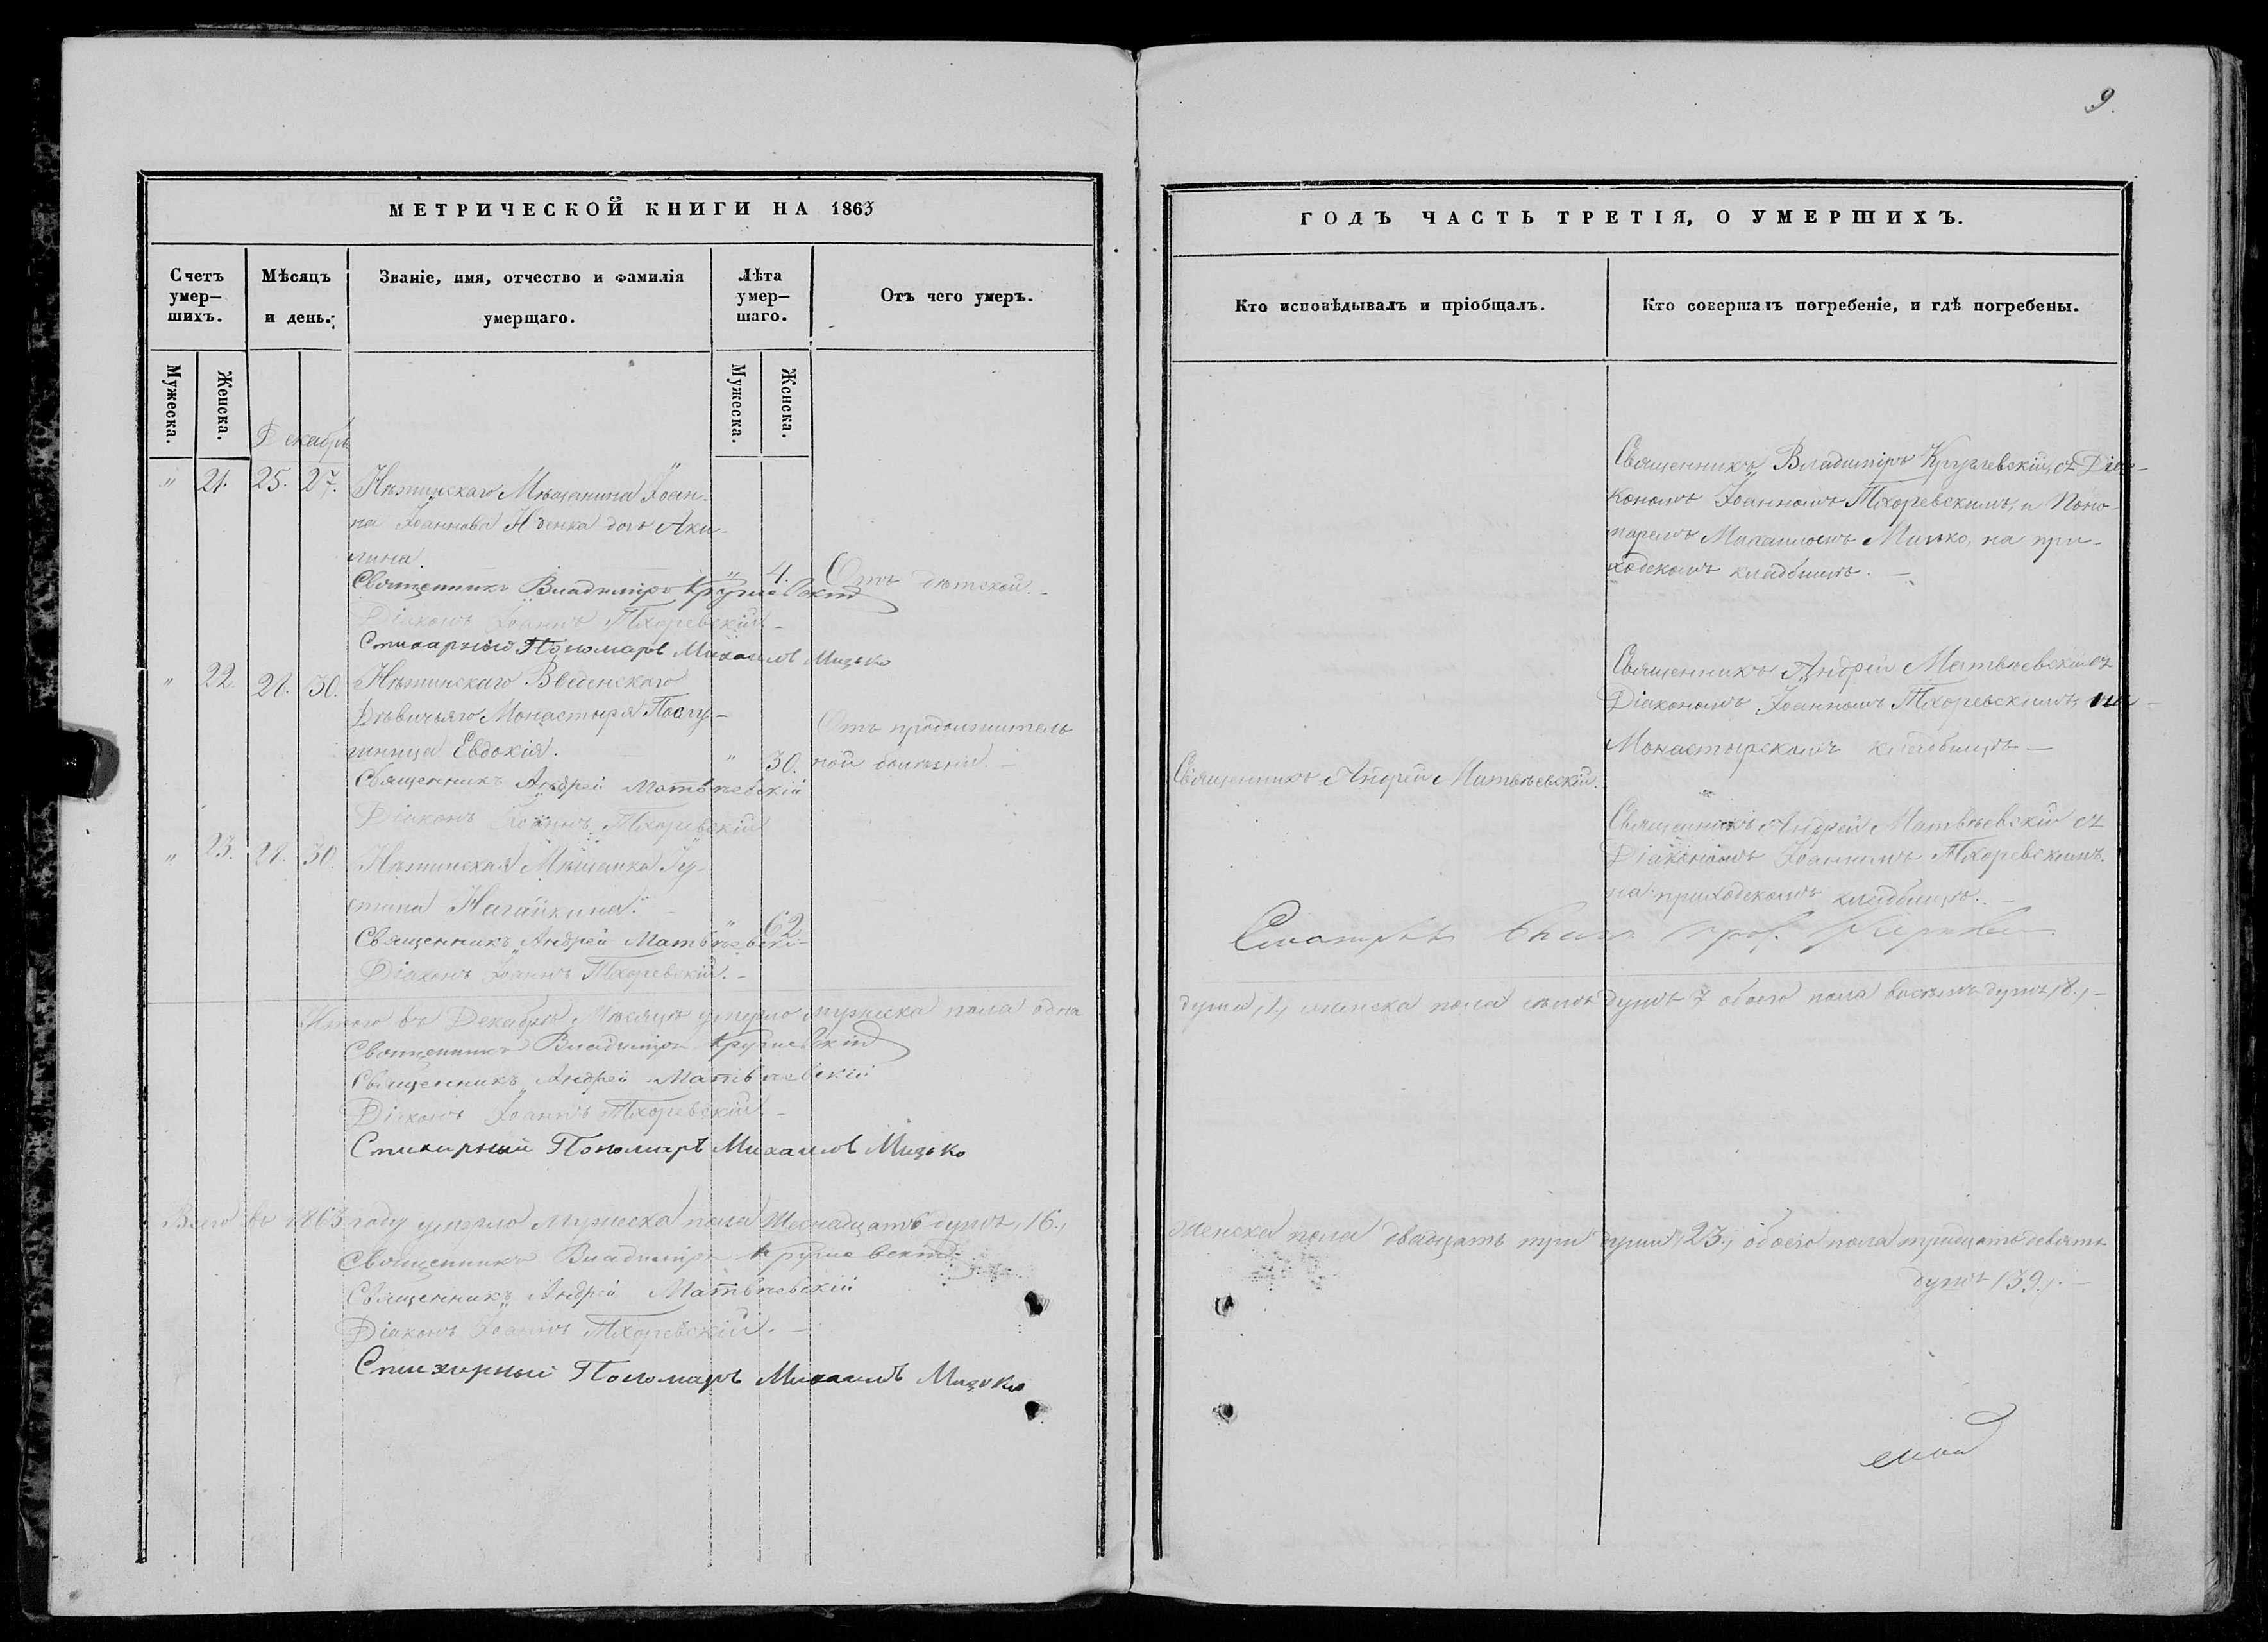 9.
МЕТРИЧЕСКОЙ КНИГИ НА 1863
Счетъ умер–шихъ.
Мѣсяцъ и день.
Званіе, имя, отчество и фамилія умершаго.
Лѣта умер–шаго.
Отъ чего умеръ.
Мужеска.
Женска.
Мужеска.
Женска.
Декабрь
" 21. 25. 27. Нѣжинскаго Мѣщанина Іоан-
на Іоаннова дочь Аки-
лина.
" 4. Отъ дѣтской.
Священникъ Владиміръ Круглевскій
Діаконъ Іоаннъ Тхоревскій
Стихарный Пономарь Михаилъ Мизько
" 22. 28. 30. Нѣжинскаго Введенскаго
Дѣвичьяго Монастыря Послу-
шница Евдокія.
" 30. Отъ продолжитель
ной болѣзни.
Священникъ Андрей Матвѣевскій
Діаконъ Іоаннъ Тхоревскій
" 23. 28. 30. Нѣжинская Мѣщанка Іу-
стина Нагайкина.
" 62
Священникъ Андрей Матвѣевскі-
Діаконъ Іоаннъ Тхоревскій.
Итого въ Декабрѣ Мѣсяцѣ умерло мужеска пола одна
Священникъ Владиміръ Круглевскій
Священникъ Андрей Матвѣевскій
Діаконъ Іоаннъ Тхоревскій
Стихирный Пономарь Михаилъ Мизько
Всего въ 1863 году умерло Мужеска пола Шеснадцать душъ, 16.,
Священникъ Владиміръ Круглевскій
Священникъ Андрей Матвѣевскій
Діаконъ Іоаннъ Тхоревскій.
Стихирный Пономарь Михаилъ Мизько
ГОДЪ ЧАСТЬ ТРЕТІЯ, О УМЕРШИХЪ.
Кто исповѣдывалъ и пріобщалъ.
Кто совершалъ погребеніе, и гдѣ погребены.
Священникъ Владиміръ Круглевскій, съ Діа-
кономъ Іоанномъ Тхоревскимъ, и Поно-
маремъ Михаиломъ Мизько, на при-
ходскомъ кладбищѣ.
Священникъ Андрей Матвѣевскій съ
Діакономъ Іоанномъ Тхоревскимъ, на
Монастырскомъ кладбищѣ
Священникъ Андрей Матвѣевскій.
Священникъ Андрей Матвѣевскій съ
Діакономъ Іоанномъ Тхоревскимъ.
на приходскомъ кладбищѣ.
душа, 1, женска пола семь душъ 7 обоего пола восемь душъ, 8.,
Женска пола двадцать три души, 23., обоего пола тридцать девять
душъ, 39.,